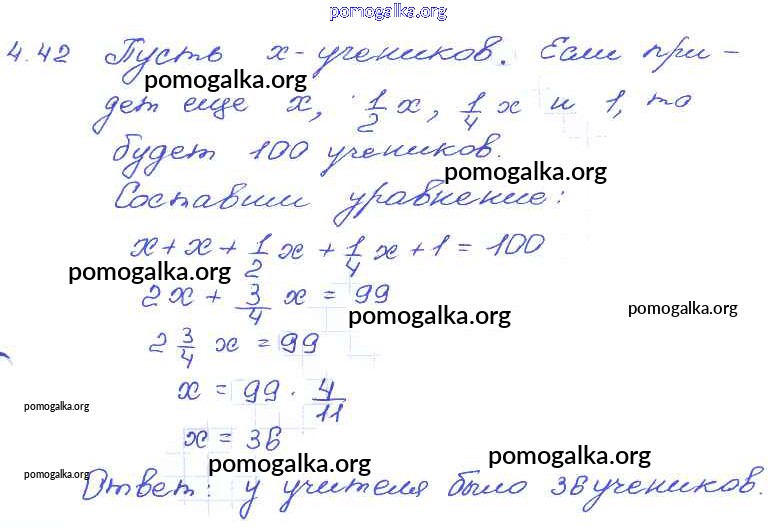 pomogalka.org
4.42 Пусть x - учеников. Если при-
pomogalka.org
дет еще x, 1/2 x, 1/4 x и 1, то
будет 100 учеников.
pomogalka.org
Составим уравнение:
x + x + 1/2 x + 1/4 x + 1 = 100
pomogalka.org
2x + 3/4 x = 99
pomogalka.org
pomogalka.org
2 3/4 x = 99
x = 99 · 4/11
pomogalka.org
x = 36
pomogalka.org
pomogalka.org
pomogalka.org
Ответ: у учителя было 36 учеников.